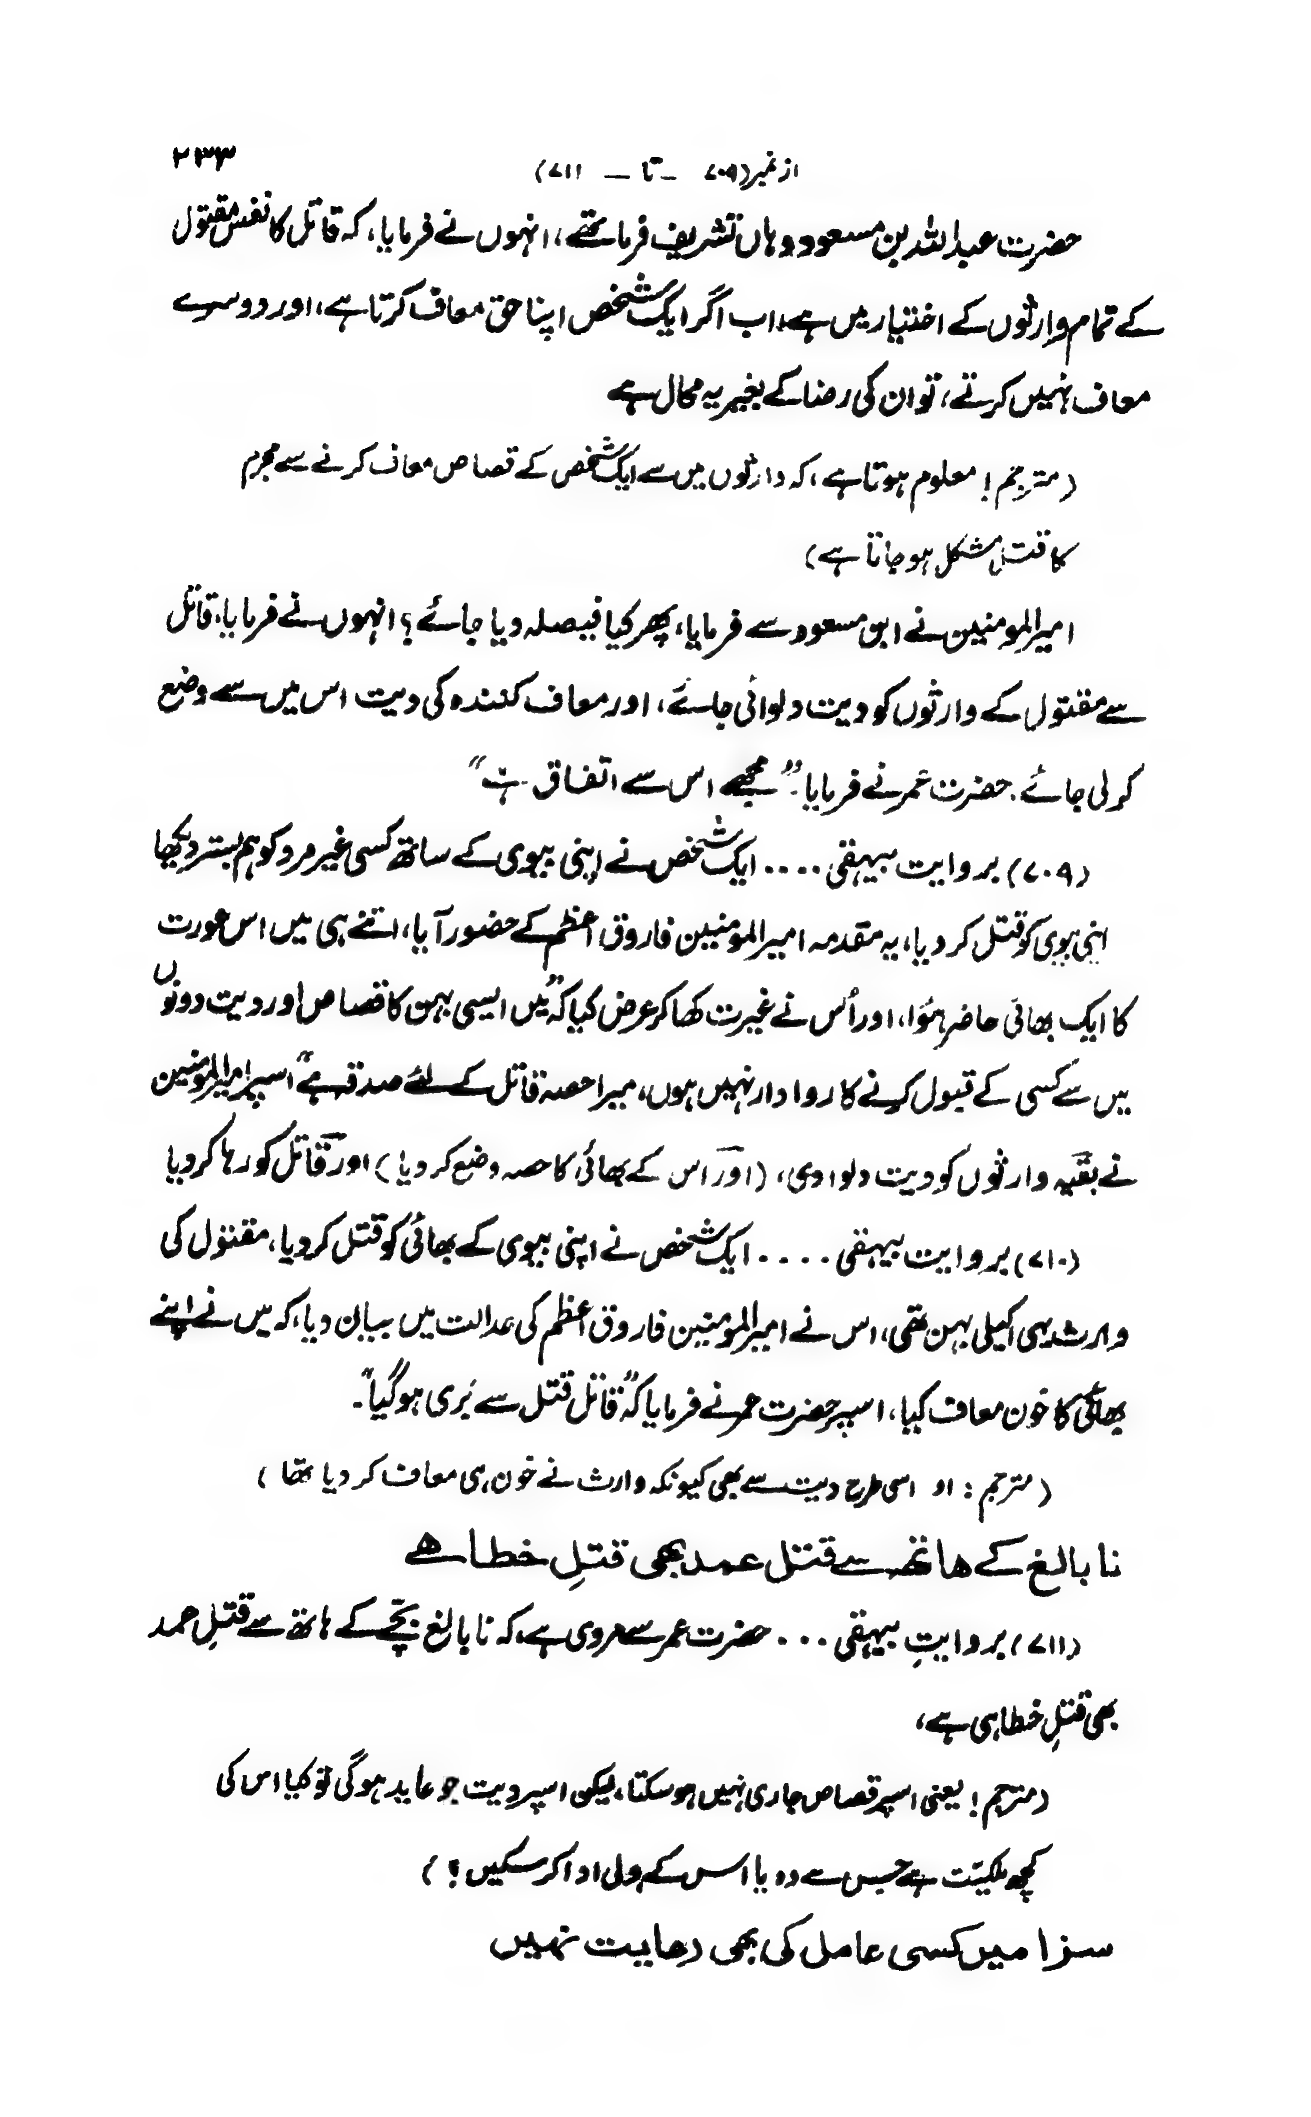 از نمبر (۷۰۹ - تا - ۷۱۱)
۲۳۳
حضرت عبداللہ بن مسعود وہاں تشریف فرما تھے، انہوں نے فرمایا، کہ قاتل کا نفس مقتول
کے تمام وارثوں کے اختیار میں ہے، اب اگر ایک شخص اپنا حق معاف کرتا ہے، اور دوسرے
معاف نہیں کرتے، تو ان کی رضا کے بغیر یہ محال ہے
(مترجم! معلوم ہوتا ہے، کہ وارثوں میں سے ایک شخص کے قصاص معاف کرنے سے مجرم
کا قتل مشکل ہو جاتا ہے)
امیر المومنین نے ابن مسعود سے فرمایا، پھر کیا فیصلہ دیا جائے؟ انہوں نے فرمایا، قاتل
سے مقتول کے وارثوں کو دیت دلوائی جائے، اور معاف کنندہ کی دیت اس میں سے وضع
کر لی جائے۔ حضرت عمر نے فرمایا۔ ”مجھے اس سے اتفاق ہے“
(۷۰۹) بروایت بیہقی .... ایک شخص نے اپنی بیوی کے ساتھ کسی غیر مرد کو ہم بستر دیکھا
اپنی بیوی کو قتل کر دیا، یہ مقدمہ امیر المومنین فاروق اعظم کے حضور آیا، اتنے ہی میں اس عورت
کا ایک بھائی حاضر ہوا، اور اُس نے غیرت کھا کر عرض کیا کہ ”میں ایسی بہن کا قصاص اور دیت دونوں
میں سے کسی کے قبول کرنے کا روا دار نہیں ہوں، میرا حصہ قاتل کے لئے صدقہ ہے“ اسپر امیر المومنین
نے بقیہ وارثوں کو دیت دلوا دی، (اور اس کے بھائی کا حصہ وضع کر دیا) اور قاتل کو رہا کر دیا
(۷۱۰) بروایت بیہقی .... ایک شخص نے اپنی بیوی کے بھائی کو قتل کر دیا، مقتول کی
وارث یہی اکیلی بہن تھی، اس نے امیر المومنین فاروق اعظم کی عدالت میں بیان دیا، کہ میں نے اپنے
بھائی کا خون معاف کیا، اسپر حضرت عمر نے فرمایا کہ ”قاتل قتل سے بَری ہو گیا“۔
(مترجم: او اسی طرح دیت سے بھی کیونکہ وارث نے خون ہی معاف کر دیا تھا)
نا بالغ کے ہاتھ سے قتل عمد بھی قتلِ خطا ہے
(۷۱۱) بروایتِ بیہقی ... حضرت عمر سے مروی ہے، کہ نا بالغ بچّے کے ہاتھ سے قتلِ عمد
بھی قتلِ خطا ہی ہے،
(مترجم! یعنی اسپر قصاص جاری نہیں ہو سکتا، لیکن اسپر دیت جو عاید ہو گی تو کیا اس کی
کچھ ملکیّت ہے جس سے وہ یا اس کے ولی ادا کر سکیں؟)
سزا میں کسی عامل کی بھی رعایت نہیں